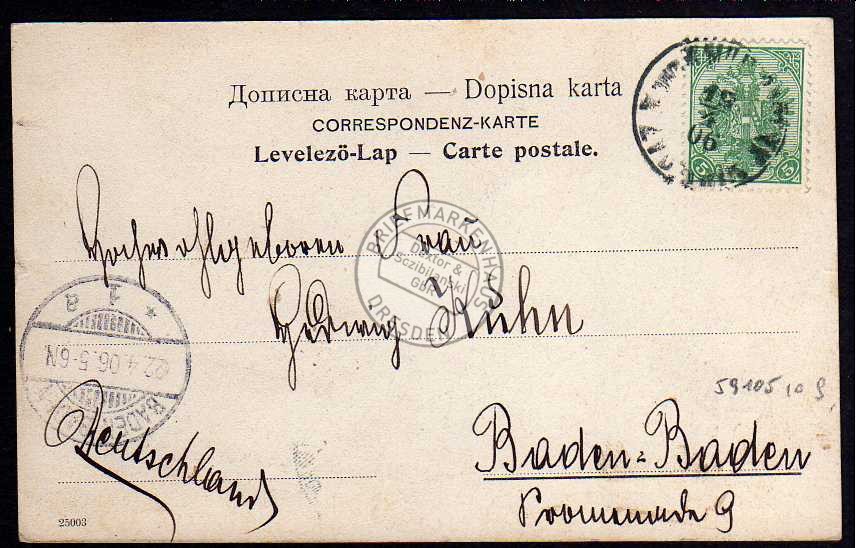 Дописна карта — Dopisna karta
CORRESPONDENZ-KARTE
Levelezö-Lap — Carte postale.
5 5
06
Hochwohlgeboren Frau
BRIEFMARKENHAUS
Dektor &
Sczibilanski
GbR
DRESDEN
Hedwig Kühn
1 a
22.4.06.5-6N.
BADEN
59105 10 9
Deutschland
Baden-Baden
Promenade 9
25003